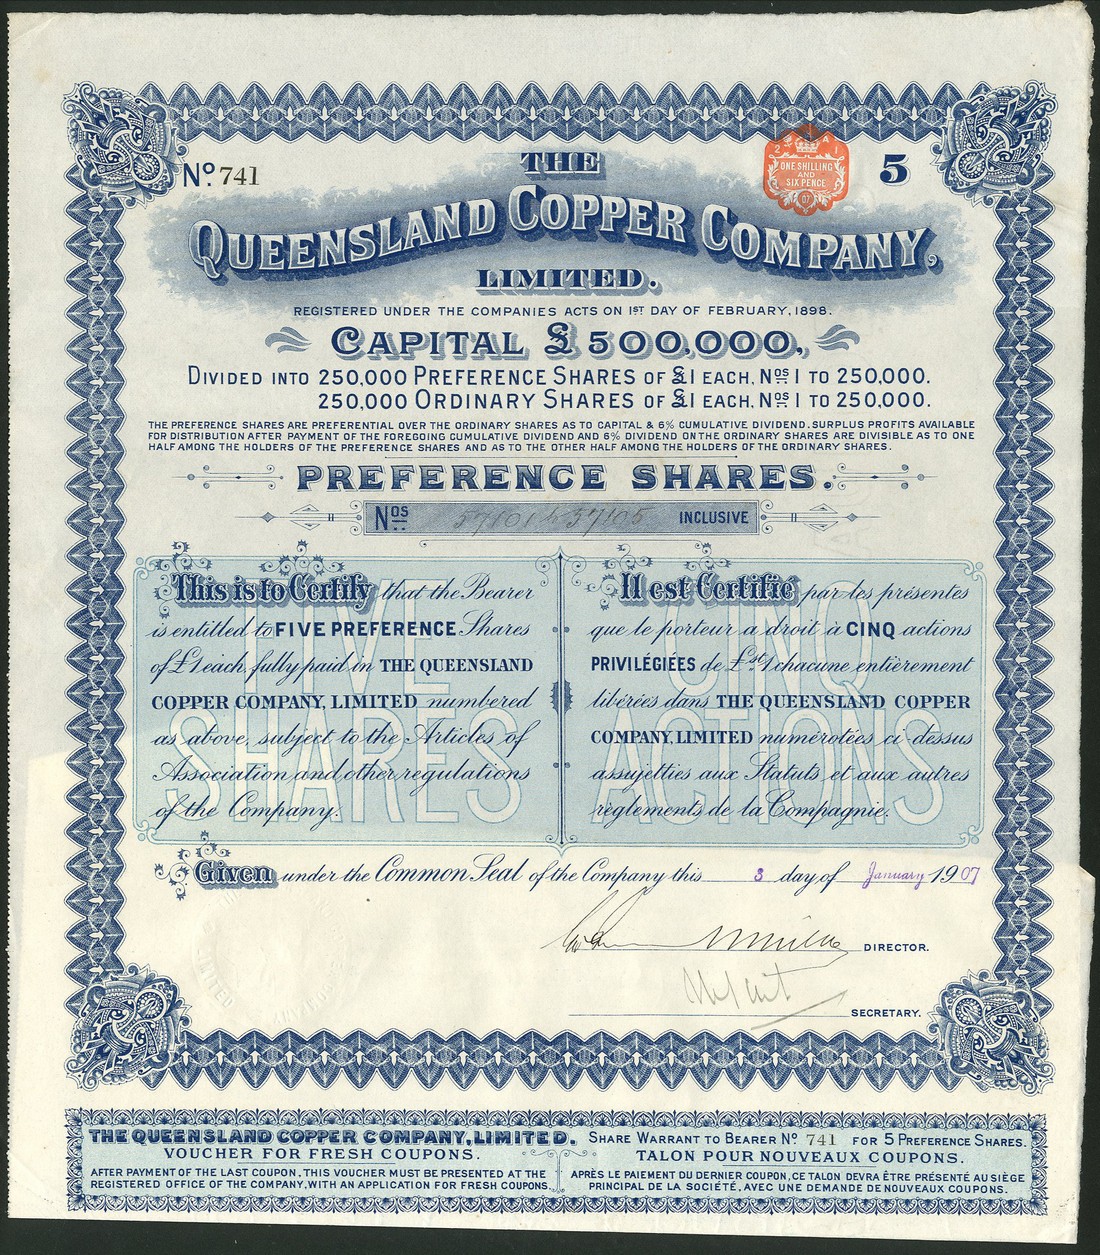 Nº. 741
THE
2 1
ONE SHILLING
AND
SIX PENCE
07
5
QUEENSLAND COPPER COMPANY,
LIMITED.
REGISTERED UNDER THE COMPANIES ACTS ON 1ST DAY OF FEBRUARY, 1898.
CAPITAL £500,000,
DIVIDED INTO 250,000 PREFERENCE SHARES OF £1 EACH, NOS 1 TO 250,000.
250,000 ORDINARY SHARES OF £1 EACH, NOS 1 TO 250,000.
THE PREFERENCE SHARES ARE PREFERENTIAL OVER THE ORDINARY SHARES AS TO CAPITAL & 6% CUMULATIVE DIVIDEND. SURPLUS PROFITS AVAILABLE
FOR DISTRIBUTION AFTER PAYMENT OF THE FOREGOING CUMULATIVE DIVIDEND AND 6% DIVIDEND ON THE ORDINARY SHARES ARE DIVISIBLE AS TO ONE
HALF AMONG THE HOLDERS OF THE PREFERENCE SHARES AND AS TO THE OTHER HALF AMONG THE HOLDERS OF THE ORDINARY SHARES.
PREFERENCE SHARES.
NOS 57101 to 57105 INCLUSIVE
FIVE
SHARES
This is to Certify that the Bearer
is entitled to FIVE PREFERENCE Shares
of £1 each, fully paid in THE QUEENSLAND
COPPER COMPANY, LIMITED numbered
as above, subject to the Articles of
Association and other regulations
of the Company.
CINQ
ACTIONS
Il est Certifié par les présentes
que le porteur a droit à CINQ actions
PRIVILÉGIÉES de £st 1 chacune entièrement
libérées dans THE QUEENSLAND COPPER
COMPANY, LIMITED numérotées ci-dessus
assujetties aux Statuts et aux autres
règlements de la Compagnie.
Given under the Common Seal of the Company this 3 day of January 1907
DIRECTOR.
SECRETARY.
THE QUEENSLAND COPPER COMPANY, LIMITED.
VOUCHER FOR FRESH COUPONS.
AFTER PAYMENT OF THE LAST COUPON, THIS VOUCHER MUST BE PRESENTED AT THE
REGISTERED OFFICE OF THE COMPANY, WITH AN APPLICATION FOR FRESH COUPONS.
SHARE WARRANT TO BEARER Nº 741 FOR 5 PREFERENCE SHARES.
TALON POUR NOUVEAUX COUPONS.
APRÈS LE PAIEMENT DU DERNIER COUPON, CE TALON DEVRA ÊTRE PRÉSENTÉ AU SIÈGE
PRINCIPAL DE LA SOCIÉTÉ, AVEC UNE DEMANDE DE NOUVEAUX COUPONS.